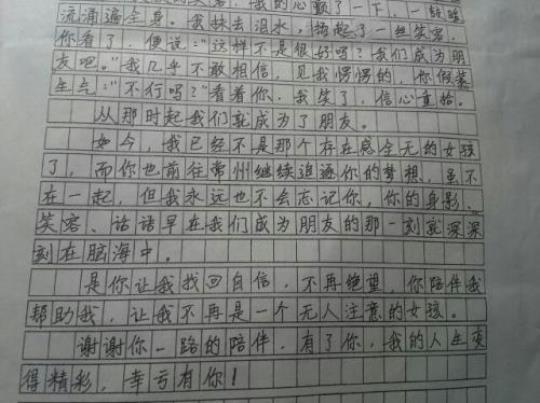 的笑容，我的心颤了一下，一股暖
流涌遍全身。我抹去泪水，扬起了一丝笑容，
你看了，便说："这样不是很好吗？我们成为朋
友吧。"我几乎不敢相信，见我愣愣的，你假装
生气："不行吗？"看着你，我笑了，信心重拾。
从那时起我们就成为了朋友。
如今，我已经不是那个存在感全无的女孩
了，而你也前往常州继续追逐你的梦想，虽不
在一起，但我永远也不会忘记你，你的身影、
笑容、话语早在我们成为朋友的那一刻就深深
刻在脑海中。
是你让我找回自信，不再绝望，你陪伴我
帮助我，让我不再是一个无人注意的女孩。
谢谢你一路的陪伴，有了你，我的人生变
得精彩，幸亏有你！